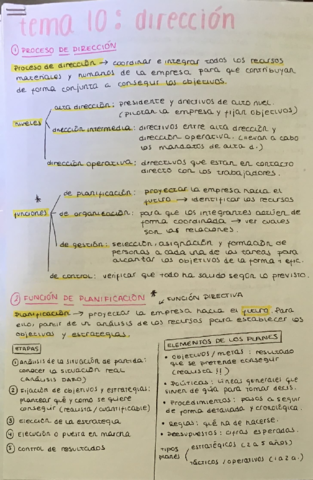 tema 10: dirección
① PROCESO DE DIRECCIÓN
Proceso de dirección → coordinar e integrar todos los recursos
materiales y humanos de la empresa para que contribuyan
de forma conjunta a conseguir los objetivos.
alta dirección: presidente y directivos de alto nivel
(pilotar la empresa y fijar objetivos)
NIVELES
dirección intermedia: directivos entre alta dirección y
dirección operativa. (llevar a cabo
los mandatos de alta d.)
dirección operativa: directivos que están en contacto
directo con los trabajadores.
de planificación: proyectar la empresa hacia el
futuro → identificar los recursos
FUNCIONES
de organización: para que los integrantes actúen de
forma coordinada → ver cuales
son las relaciones.
de gestión: selección, asignación y formación de
personas a cada una de las tareas, para
alcanzar los objetivos de la forma + efic.
de control: verificar que todo ha salido según lo previsto.
2 FUNCIÓN DE PLANIFICACIÓN * FUNCIÓN DIRECTIVA
Planificación → proyectar la empresa hacia el futuro, para
ello, parte de un análisis de los recursos para establecer los
objetivos y estrategias.
ETAPAS
① Análisis de la situación de partida:
conocer la situación real
(análisis DAFO)
② Fijación de objetivos y estrategias:
plantear qué y como se quiere
conseguir (realista / cuantificable)
③ Elección de la estrategia
④ Ejecución o puesta en marcha
⑤ Control de resultados
ELEMENTOS DE LOS PLANES
• Objetivos / metas: resultado
que se pretende conseguir
(realista!!)
• Políticas: líneas generales que
sirven de guía para tomar decis.
• Procedimientos: pasos a seguir
de forma detallada y cronológica.
• Reglas: qué no hacerse.
• Presupuestos: cifras esperadas.
TIPOS PLANES
estratégicos (2 a 5 años)
tácticos / operativos (1 a 2 a.)